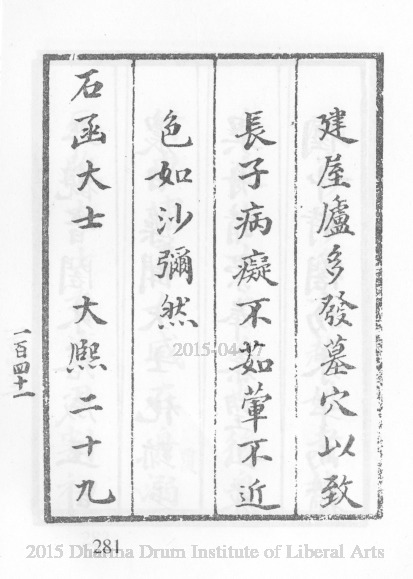 建屋廬多發墓穴以致
長子病癡不茹葷不近
色如沙彌然
石函大士 大熙二十九
一百四十一
2015-04-17
281
2015 Dharma Drum Institute of Liberal Arts